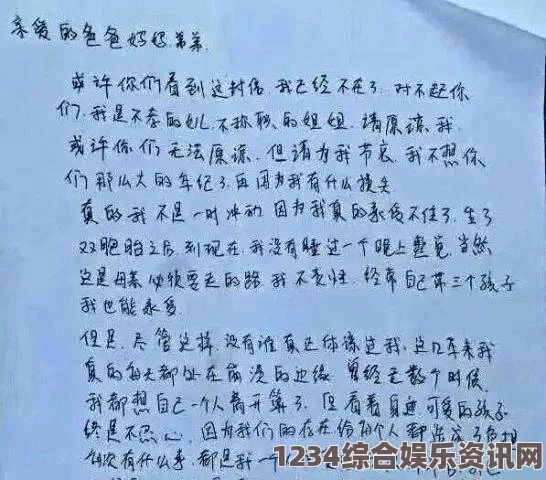 亲爱的爸爸妈妈弟弟.
或许你们看到这封信,我已经不在了,对不起你
们,我是不孝的女儿,不称职的姐姐,请原谅我.
或许你们无法原谅,但请为我节哀,我不想你
们那么大的年纪了,再因为我有什么损失
真的我不是一时冲动,因为我真的承受不住了,生了
双胞胎之后,到现在,我没有睡过一个晚上整觉,当然
这是母亲必须要走的路,我不责怪.经常自己带三个孩子
我也能承受
但是,尽管这样,没有谁真正体谅过我,这几年来我
真的每天都处在崩溃的边缘,曾经无数个时候,
我都想自己一个人离开算了,但看着身边可爱的孩子
终是不忍心,因为我们的存在给两个人都带来了负担
每次有什么事,都是我一个
1234综合娱乐资讯网